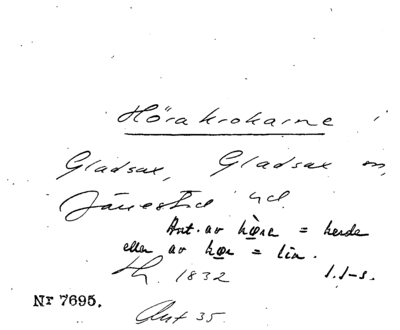 Hörakrokarne
Gladsax, Gladsax sn,
Järrestad hd.
Ant. av hœra = herde
eller av hœr = lin.
1832 I.I-s.
Nr 7695.
Akt 35